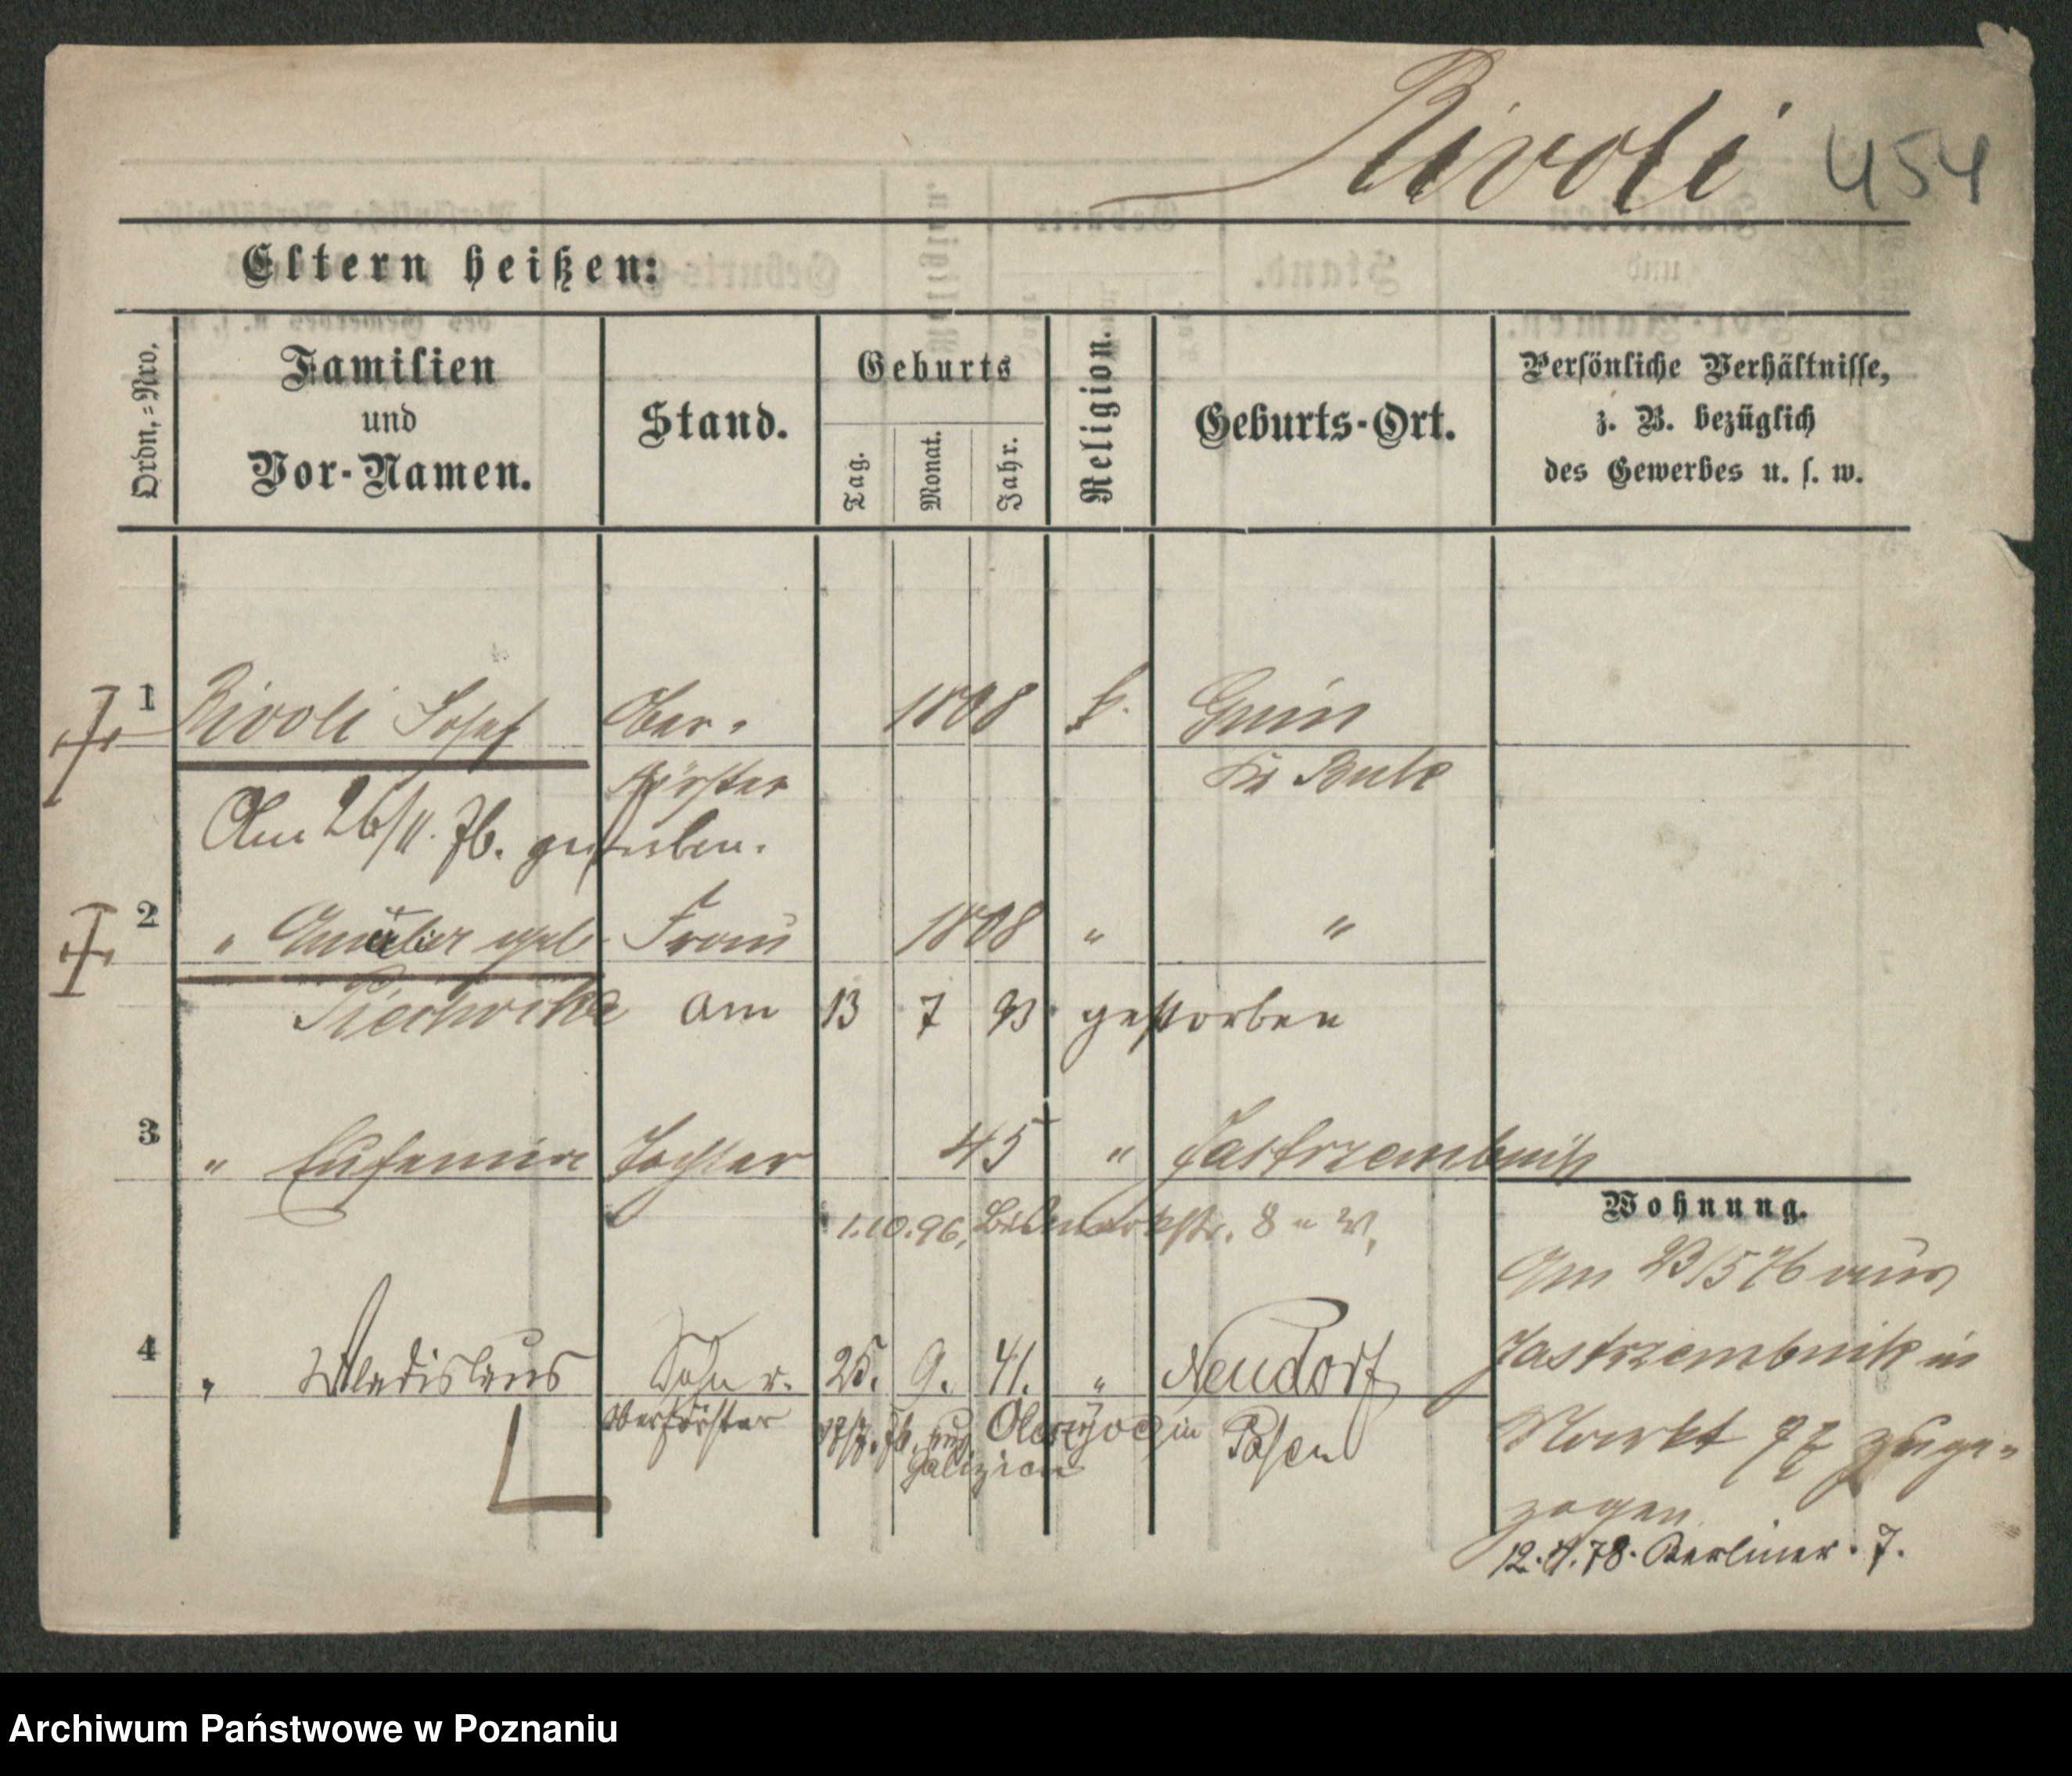 Rivoli 454
Eltern heißen:
Ordn.=Nro.
Familien
und
Vor-Namen.
Stand.
Geburts
Tag.
Monat.
Jahr.
Religion.
Geburts-Ort.
Persönliche Verhältnisse,
z. B. bezüglich
des Gewerbes u. s. w.
1 Rivoli Josef Ober- 1808 k.
förster Kr Buk
Am 26/11. 76. gestorben.
2 " geb Frau 1808 " "
am 13 7 93 gestorben
3 " Eufemia Tochter 45 " Jastrzembnik
1.10.96, Bismarkstr. 8
Wohnung.
Am 23/5 76 aus
Jastrzembnik in
Markt zuge-
zogen
12.4.78. Berliner. 7.
4 " Wladislaus Sohn 25. 9. 41. " Neudorf
Oberförster in Posen
Galizien
Archiwum Państwowe w Poznaniu